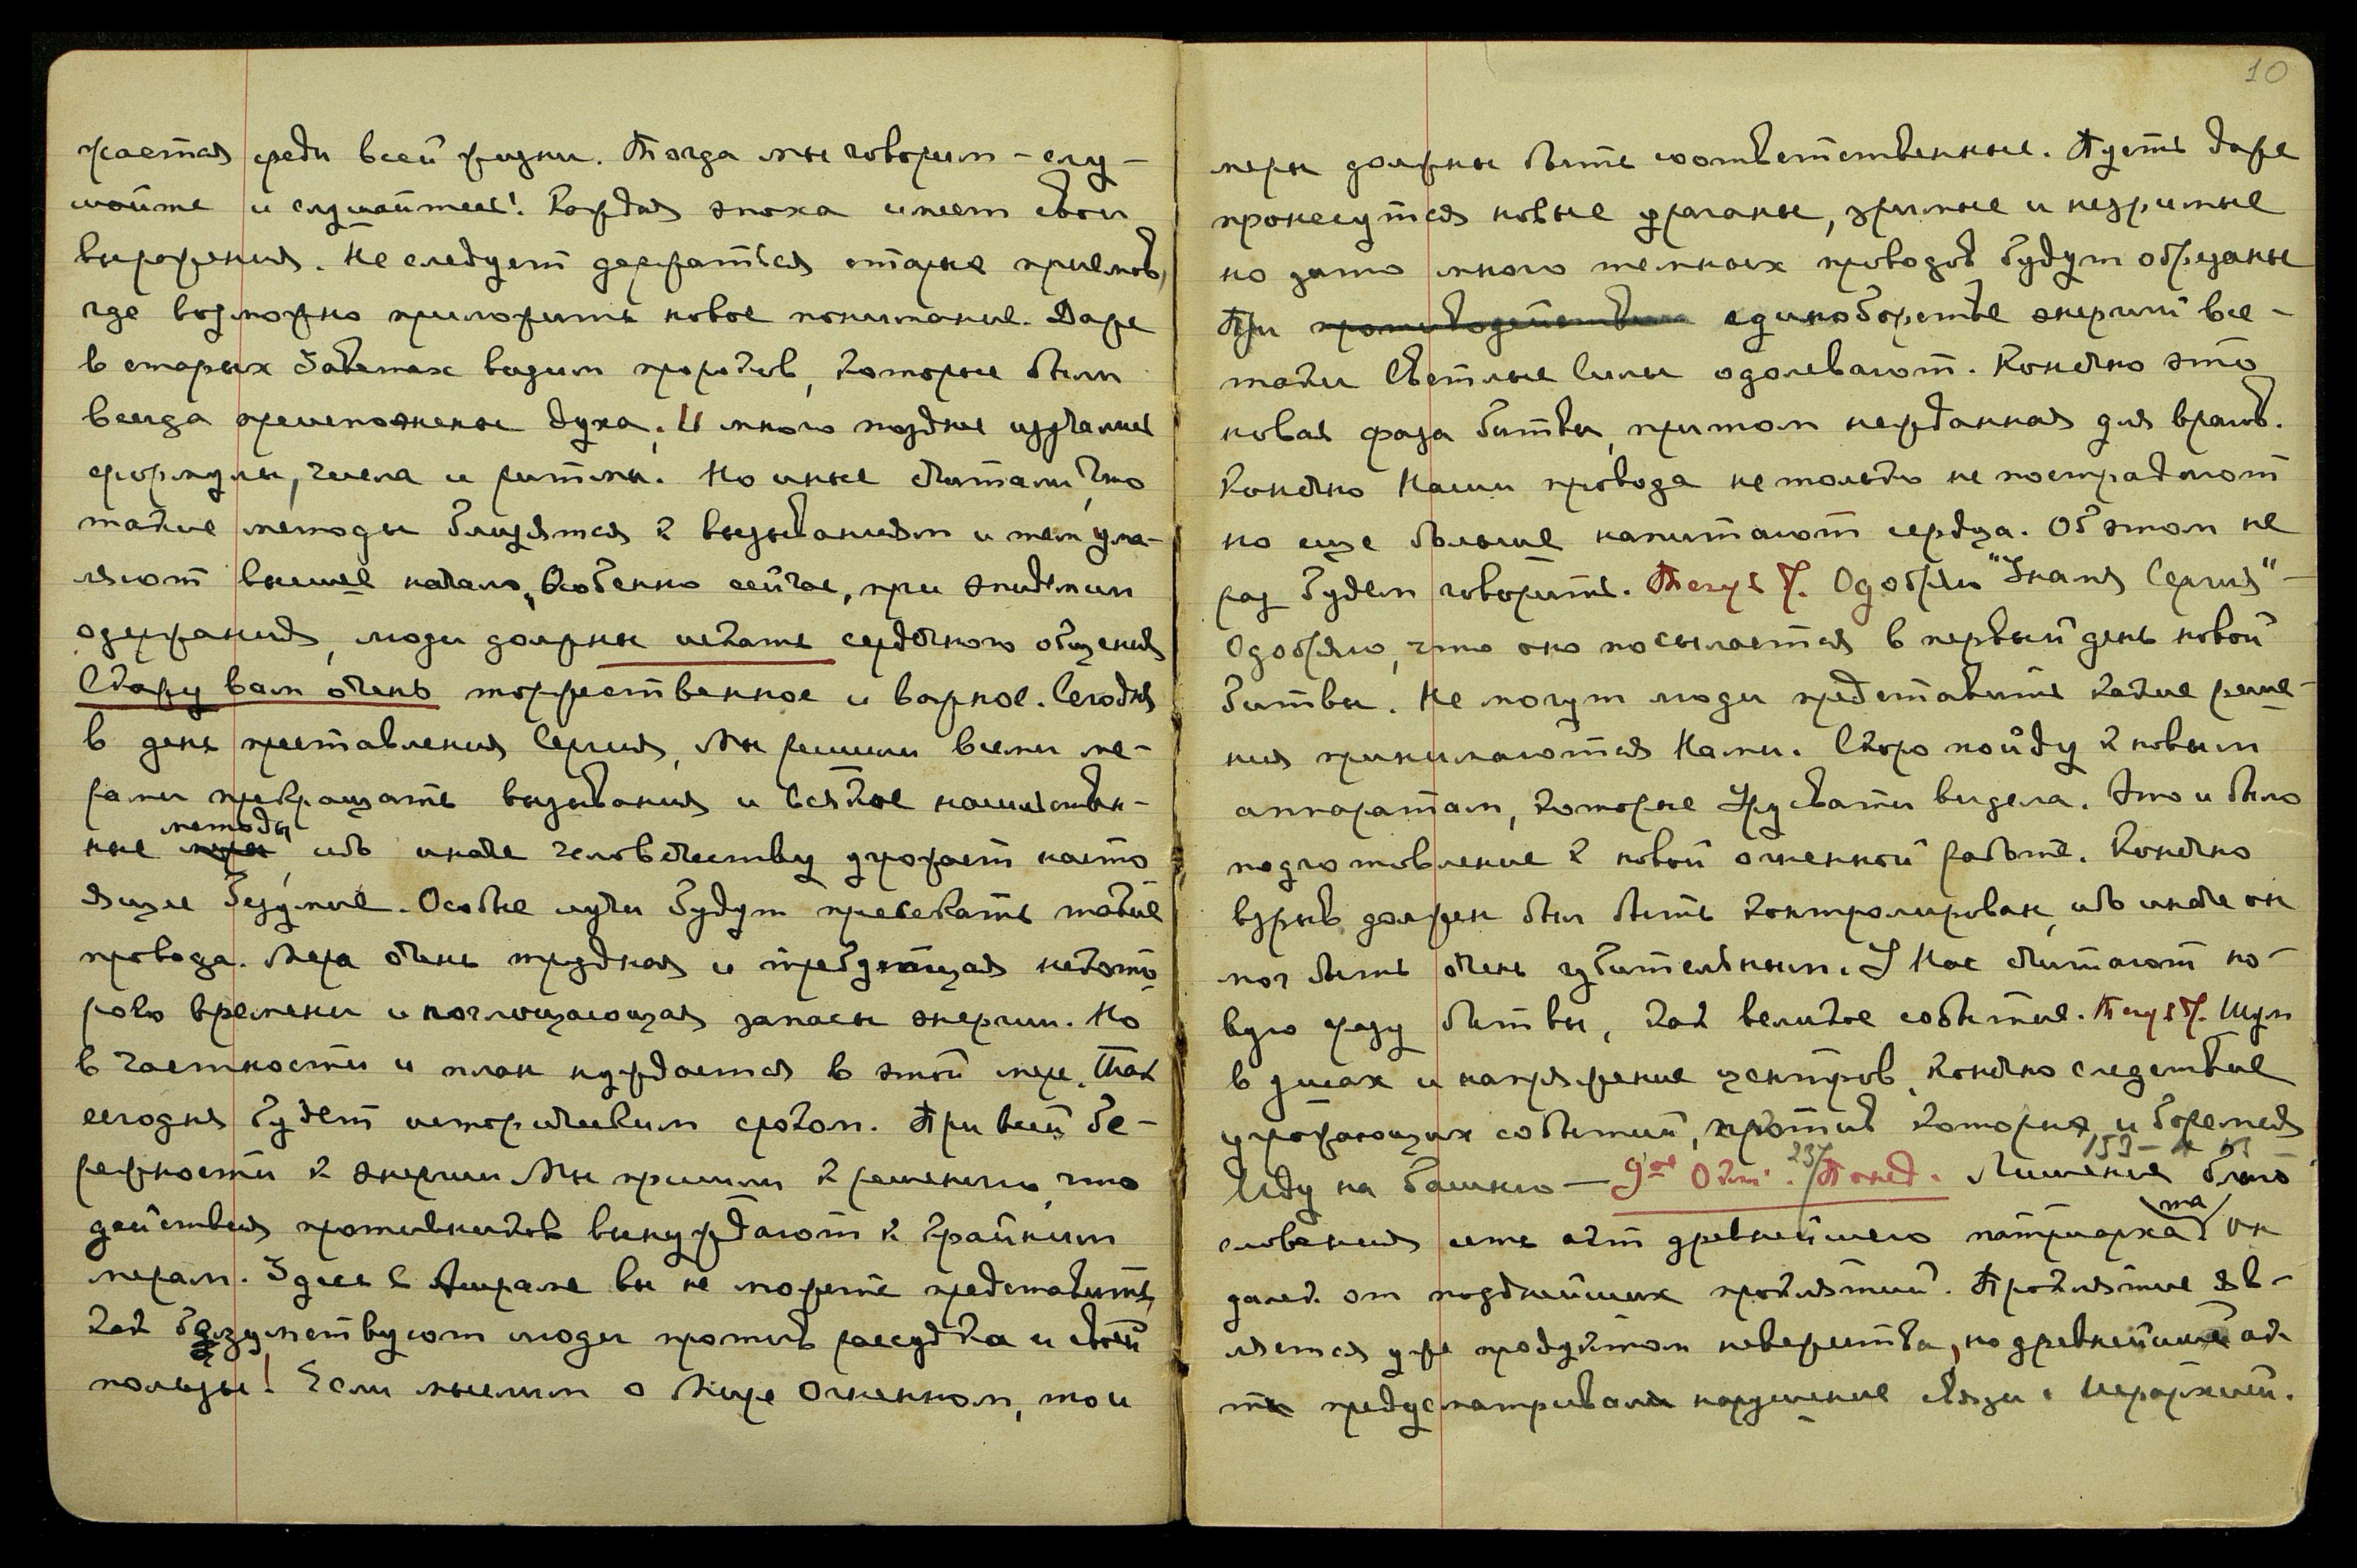 жается среди всей жизни. Тогда мы говорим – слу-
шайте и слушайтесь! Каждая эпоха имеет свои
выражения. Не следует держаться старых приемов,
где возможно приложить новое понимание. Даже
в старых Заветах видим пророков, которые были
всегда преисполнены духа. И много позднее изучались
формулы, числа и ритмы. Но иные считали, что
такие методы близятся к вызываниям и тем ума-
ляют высшее начало. Особенно сейчас, при эпидемии
одержания, люди должны искать сердечного общения
Скажу вам очень торжественное и важное. Сегодня
в день преставления Сергия, Мы решили всеми ме-
рами прекращать вызывания и всякие насильствен-
ные методы, ибо иначе человечеству угрожает насто
ящее безумие. Особые лучи будут пресекать такие
провода. Мера очень трудная и требующая некото
рого времени и поглощающая запасы энергии. Но
в частности и план нуждается в этой мере. Так
сегодня будет историческим сроком. При всей бе-
режности к энергии Мы пришли к решению, что
действия противников вынуждают к крайним
мерам. Здесь в Ашраме вы не можете представить,
как безумствуют люди против рассудка и своей
пользы! Если мыслим о Мире Огненном, то и
10
меры должны быть соответственные. Пусть даже
пронесутся новые ураганы, зримые и незримые
но зато много темных проводов будут обрезаны
При противодействии единоборстве энергий все-
таки Светлые Силы одолевают. Конечно это
новая фаза битвы, притом нежданная для врагов.
Конечно Наши провода не только не пострадают
но еще больше напитают сердца. Об этом не
раз будем говорить. Одобряю "Знамя Сергия" –
Одобряю, что оно посылается в первый день новой
битвы. Не могут люди представить какие реше-
ния принимаются Нами. Скоро пойду к новым
аппаратам, которые Урусвати видела. Это и было
подготовление к новой огненной работе. Конечно
взрыв должен был быть контролирован, ибо иначе он
мог быть очень губительным. У Нас считают но-
вую фазу битвы, как великое событие. Шум
в ушах и напряжение центров, конечно следствие
угрожающих событий, против которых и боремся
237 153
Иду на башню – 9ое Окт. Понед. Лишение благо
словения есть акт древнейшего патриархата. Он
далек от позднейших проклятий. Проклятие яв-
ляется уже продуктом невежества, но древнейший ак
т предусматривал нарушение связи с Иерархией.